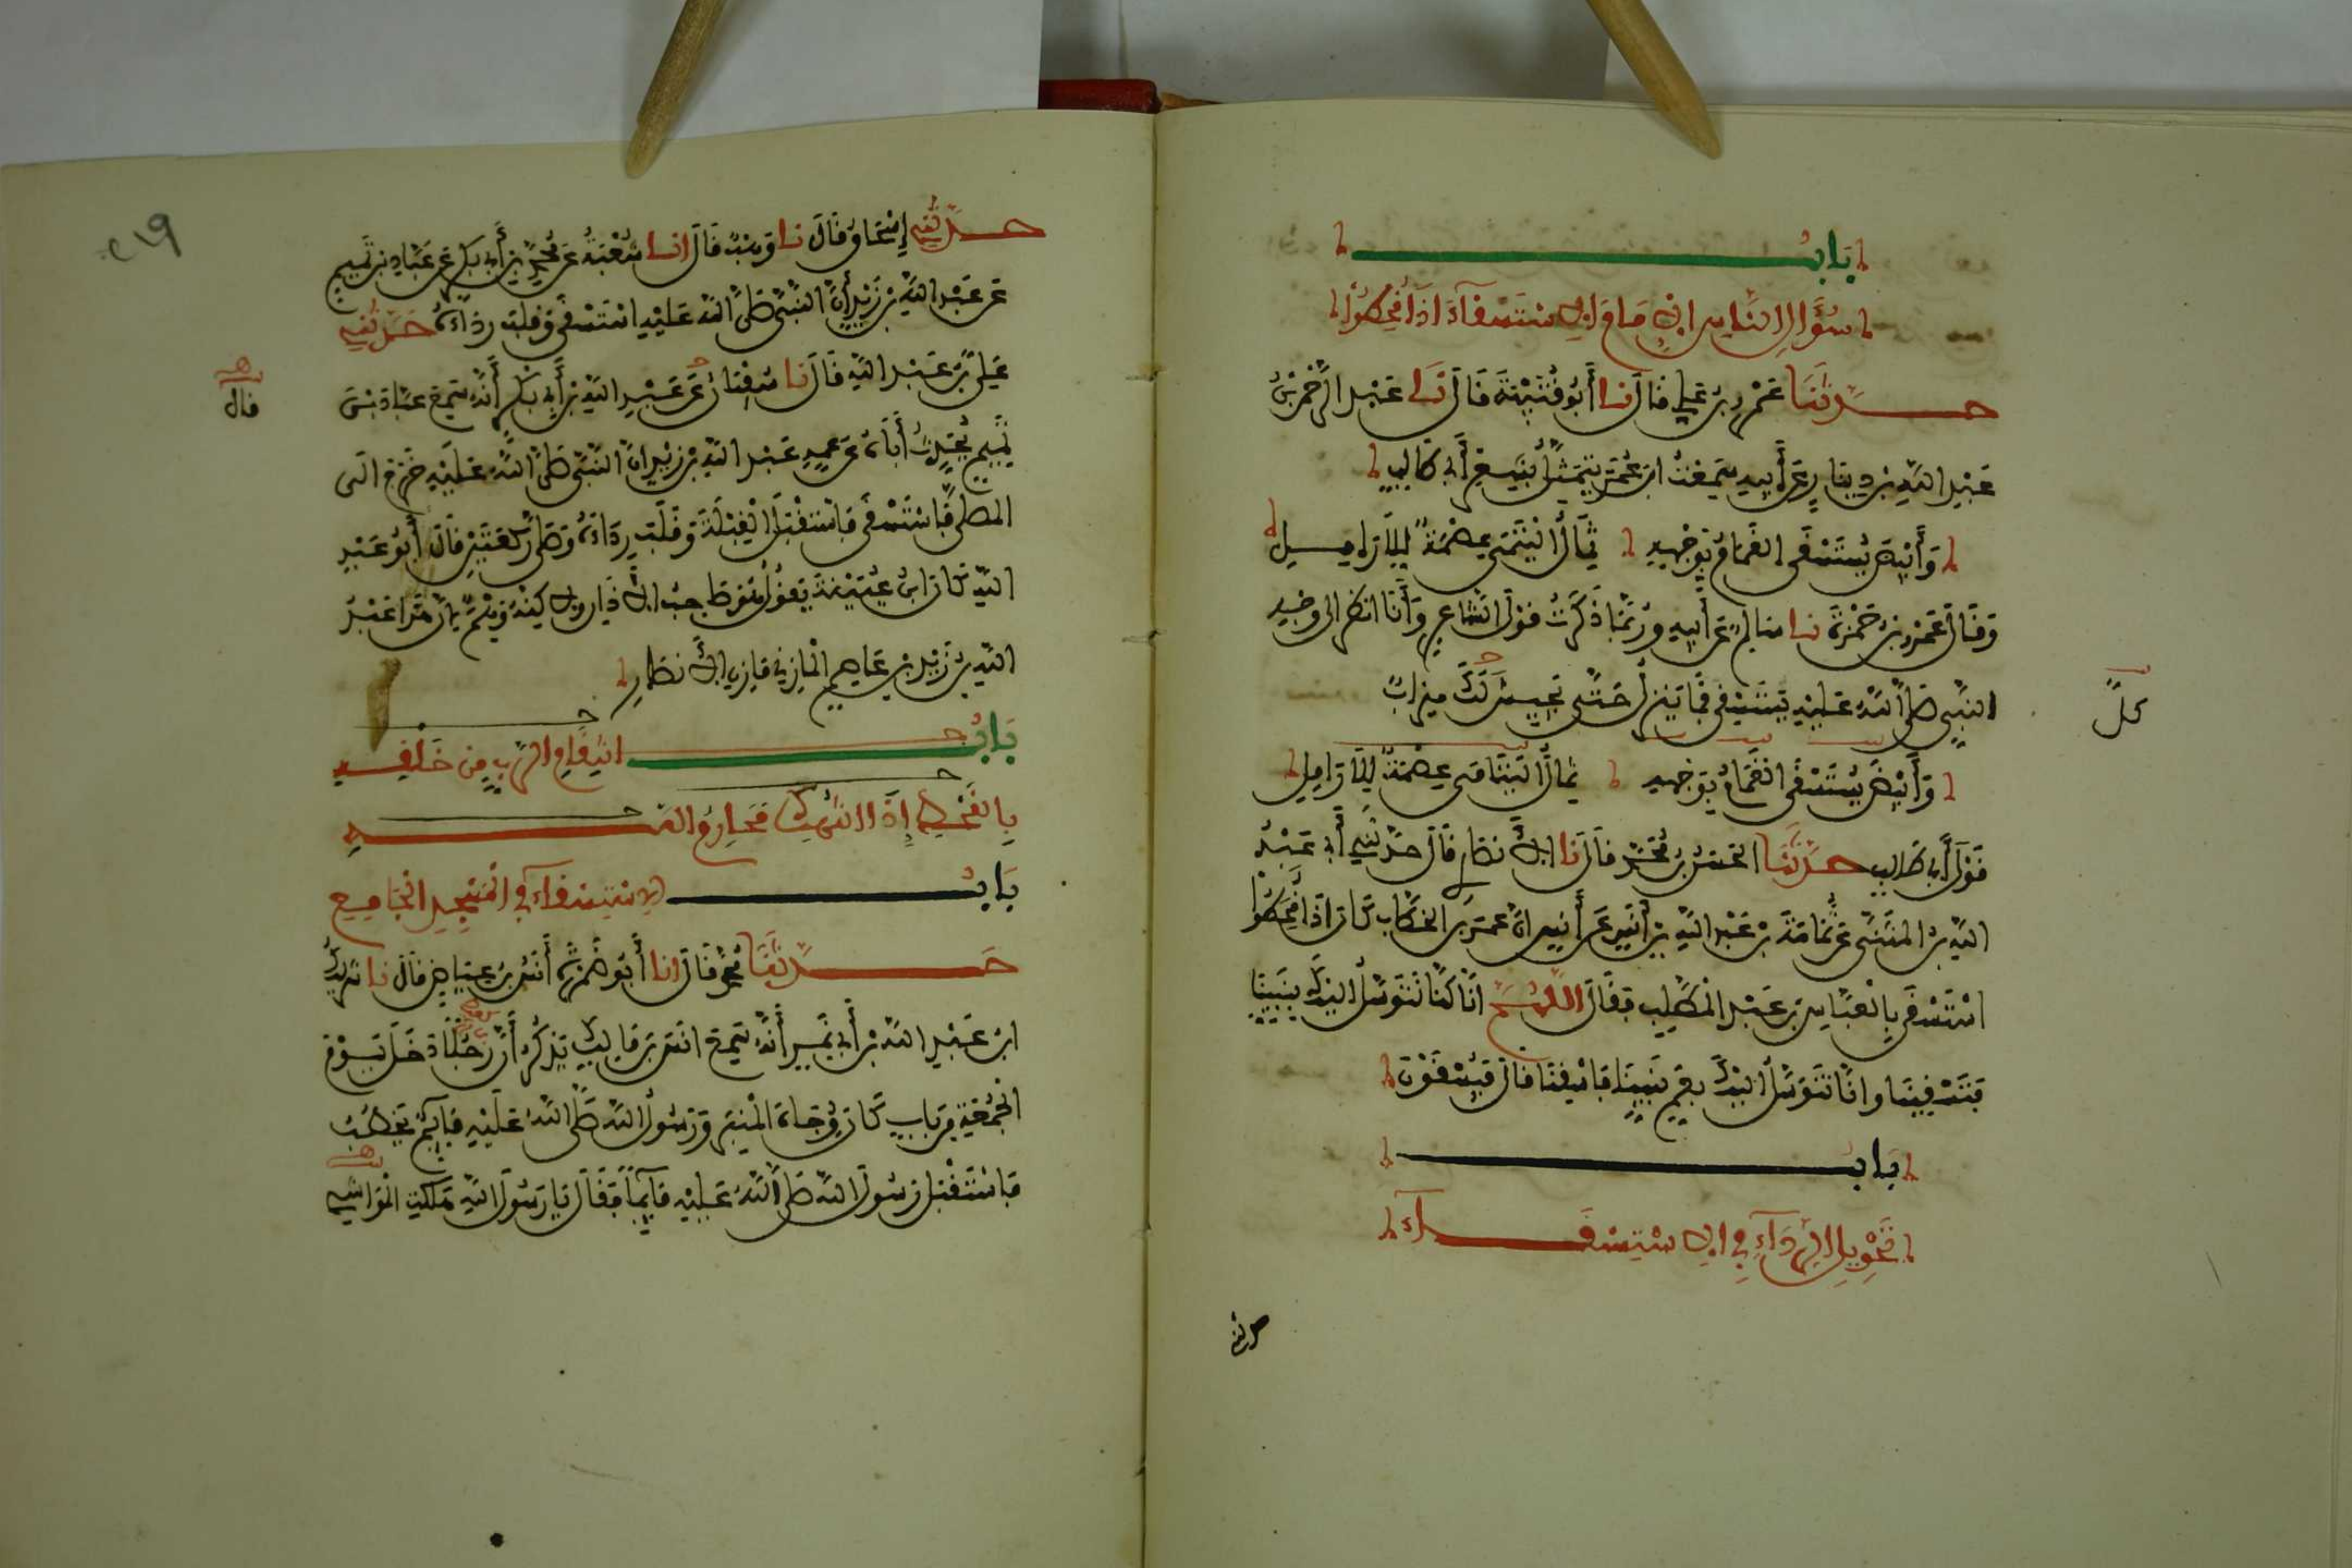 بَابُ
سُؤَالِ النَّاسِ الإِمَامَ الاِسْتِسْقَاءَ إِذَا قُحِطُوا
حَدَّثَنَا عَمْرُو بْنُ عَلِيٍّ قَالَ نَا أَبُو قُتَيْبَةَ قَالَ نَا عَبْدُ الرَّحْمَنِ بْنُ
عَبْدِ اللَّهِ بْنِ دِينَارٍ عَنْ أَبِيهِ سَمِعْتُ ابْنَ عُمَرَ يَتَمَثَّلُ بِشِعْرِ أَبِي طَالِبٍ
وَأَبْيَضَ يُسْتَسْقَى الْغَمَامُ بِوَجْهِهِ ثِمَالُ الْيَتَامَى عِصْمَةٌ لِلأَرَامِلِ
وَقَالَ عُمَرُ بْنُ حَمْزَةَ نا سَالِمٌ عَنْ أَبِيهِ وَرُبَّمَا ذَكَرْتُ قَوْلَ الشَّاعِرِ وَأَنَا أَنْظُرُ إِلَى وَجْهِ
النَّبِيِّ صَلَّى اللَّهُ عَلَيْهِ يَسْتَسْقِي فَمَا يَنْزِلُ حَتَّى يَجِيشَ لَكَ مِيزَابٌ
كلُّ
وَأَبْيَضَ يُسْتَسْقَى الْغَمَامُ بِوَجْهِهِ ثِمَالُ الْيَتَامَى عِصْمَةٌ لِلأَرَامِلِ
قَوْلُ أَبِي طَالِبٍ حَدَّثَنَا الْحَسَنُ بْنُ مُحَمَّدٍ قَالَ نَا الأَنْصَارِيُّ قَالَ حَدَّثَنِي أَبِي عَبْدُ
اللَّهِ بْنُ الْمُثَنَّى عَنْ ثُمَامَةَ بْنِ عَبْدِ اللَّهِ بْنِ أَنَسٍ عَنْ أَنَسٍ أَنَّ عُمَرَ بْنَ الْخَطَّابِ كَانَ إِذَا قُحِطُوا
اسْتَسْقَى بِالْعَبَّاسِ بْنِ عَبْدِ الْمُطَّلِبِ فَقَالَ اللَّهُمَّ إِنَّا كُنَّا نَتَوَسَّلُ إِلَيْكَ بِنَبِيِّنَا
فَتَسْقِينَا وَإِنَّا نَتَوَسَّلُ إِلَيْكَ بِعَمِّ نَبِيِّنَا فَاسْقِنَا قَالَ فَيُسْقَوْنَ
بَابُ
تَحْوِيلِ الرِّدَاءِ فِي الاِسْتِسْقَاءِ
حدثني
٢١٩
حَدَّثَنِي إِسْحَاقُ قَالَ نا وَهْبٌ قَالَ انا شُعْبَةُ عَنْ مُحَمَّدِ بْنِ أَبِي بَكْرٍ عَنْ عَبَّادِ بْنِ تَمِيمٍ
عَنْ عَبْدِ اللَّهِ بْنِ زَيْدٍ أَنَّ النَّبِيَّ صَلَّى اللَّهُ عَلَيْهِ اسْتَسْقَى وَقَلَبَ رِدَاءَهُ حَدَّثَنِي
عَلِيُّ بْنُ عَبْدِ اللَّهِ قَالَ نَا سُفْيَانُ عَنْ عَبْدِ اللَّهِ بْنِ أَبِي بَكْرٍ أَنَّهُ سَمِعَ عَبَّادَ بْنَ
قال
تَمِيمٍ يُحَدِّثُ أَبَاهُ عَنْ عَمِّهِ عَبْدِ اللَّهِ بْنِ زَيْدٍ أَنَّ النَّبِيَّ صَلَّى اللَّهُ عَلَيْهِ خَرَجَ إِلَى
الْمُصَلَّى فَاسْتَسْقَى فَاسْتَقْبَلَ الْقِبْلَةَ وَقَلَبَ رِدَاءَهُ وَصَلَّى رَكْعَتَيْنِ قَالَ أَبُو عَبْدِ
اللَّهِ كَانَ ابْنُ عُيَيْنَةَ يَقُولُ هُوَ صَاحِبُ الأَذَانِ وَلَكِنَّهُ وَهَمٌ لِأَنَّ هَذَا عَبْدُ
اللَّهِ بْنُ زَيْدِ بْنِ عَاصِمٍ الْمَازِنِيُّ مَازِنُ الأَنْصَارِ
بَابُ انْتِقَامِ الرَّبِّ مِنْ خَلْقِهِ
بِالْقَحْطِ إِذَا انْتُهِكَ مَحَارِمُ اللَّهِ
بَابُ الاِسْتِسْقَاءِ فِي الْمَسْجِدِ الْجَامِعِ
حَدَّثَنَا مُحَمَّدٌ قَالَ انا أَبُو ضَمْرَةَ أَنَسُ بْنُ عِيَاضٍ قَالَ نا شَرِيكُ
ابْنُ عَبْدِ اللَّهِ بْنِ أَبِي نَمِرٍ أَنَّهُ سَمِعَ أَنَسَ بْنَ مَالِكٍ يَذْكُرُ أَنَّ رَجُلًا دَخَلَ يَوْمَ
الْجُمُعَةِ مِنْ بَابٍ كَانَ وُجَاهَ الْمِنْبَرِ وَرَسُولُ اللَّهِ صَلَّى اللَّهُ عَلَيْهِ قَائِمٌ يَخْطُبُ
فَاسْتَقْبَلَ رَسُولَ اللَّهِ صَلَّى اللَّهُ عَلَيْهِ قَائِمًا فَقَالَ يَا رَسُولَ اللَّهِ هَلَكَتِ الْمَوَاشِي